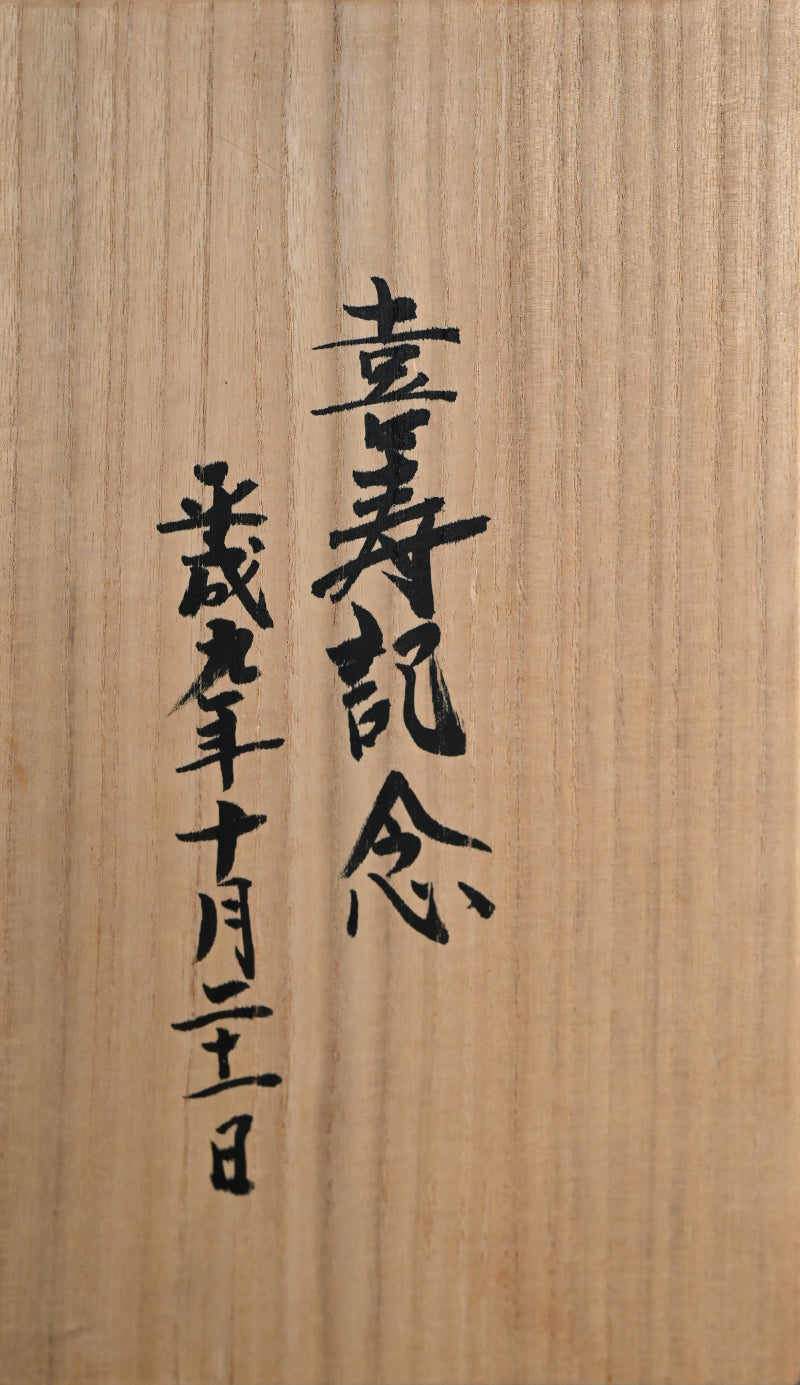 喜寿記念
平成九年十月二十一日